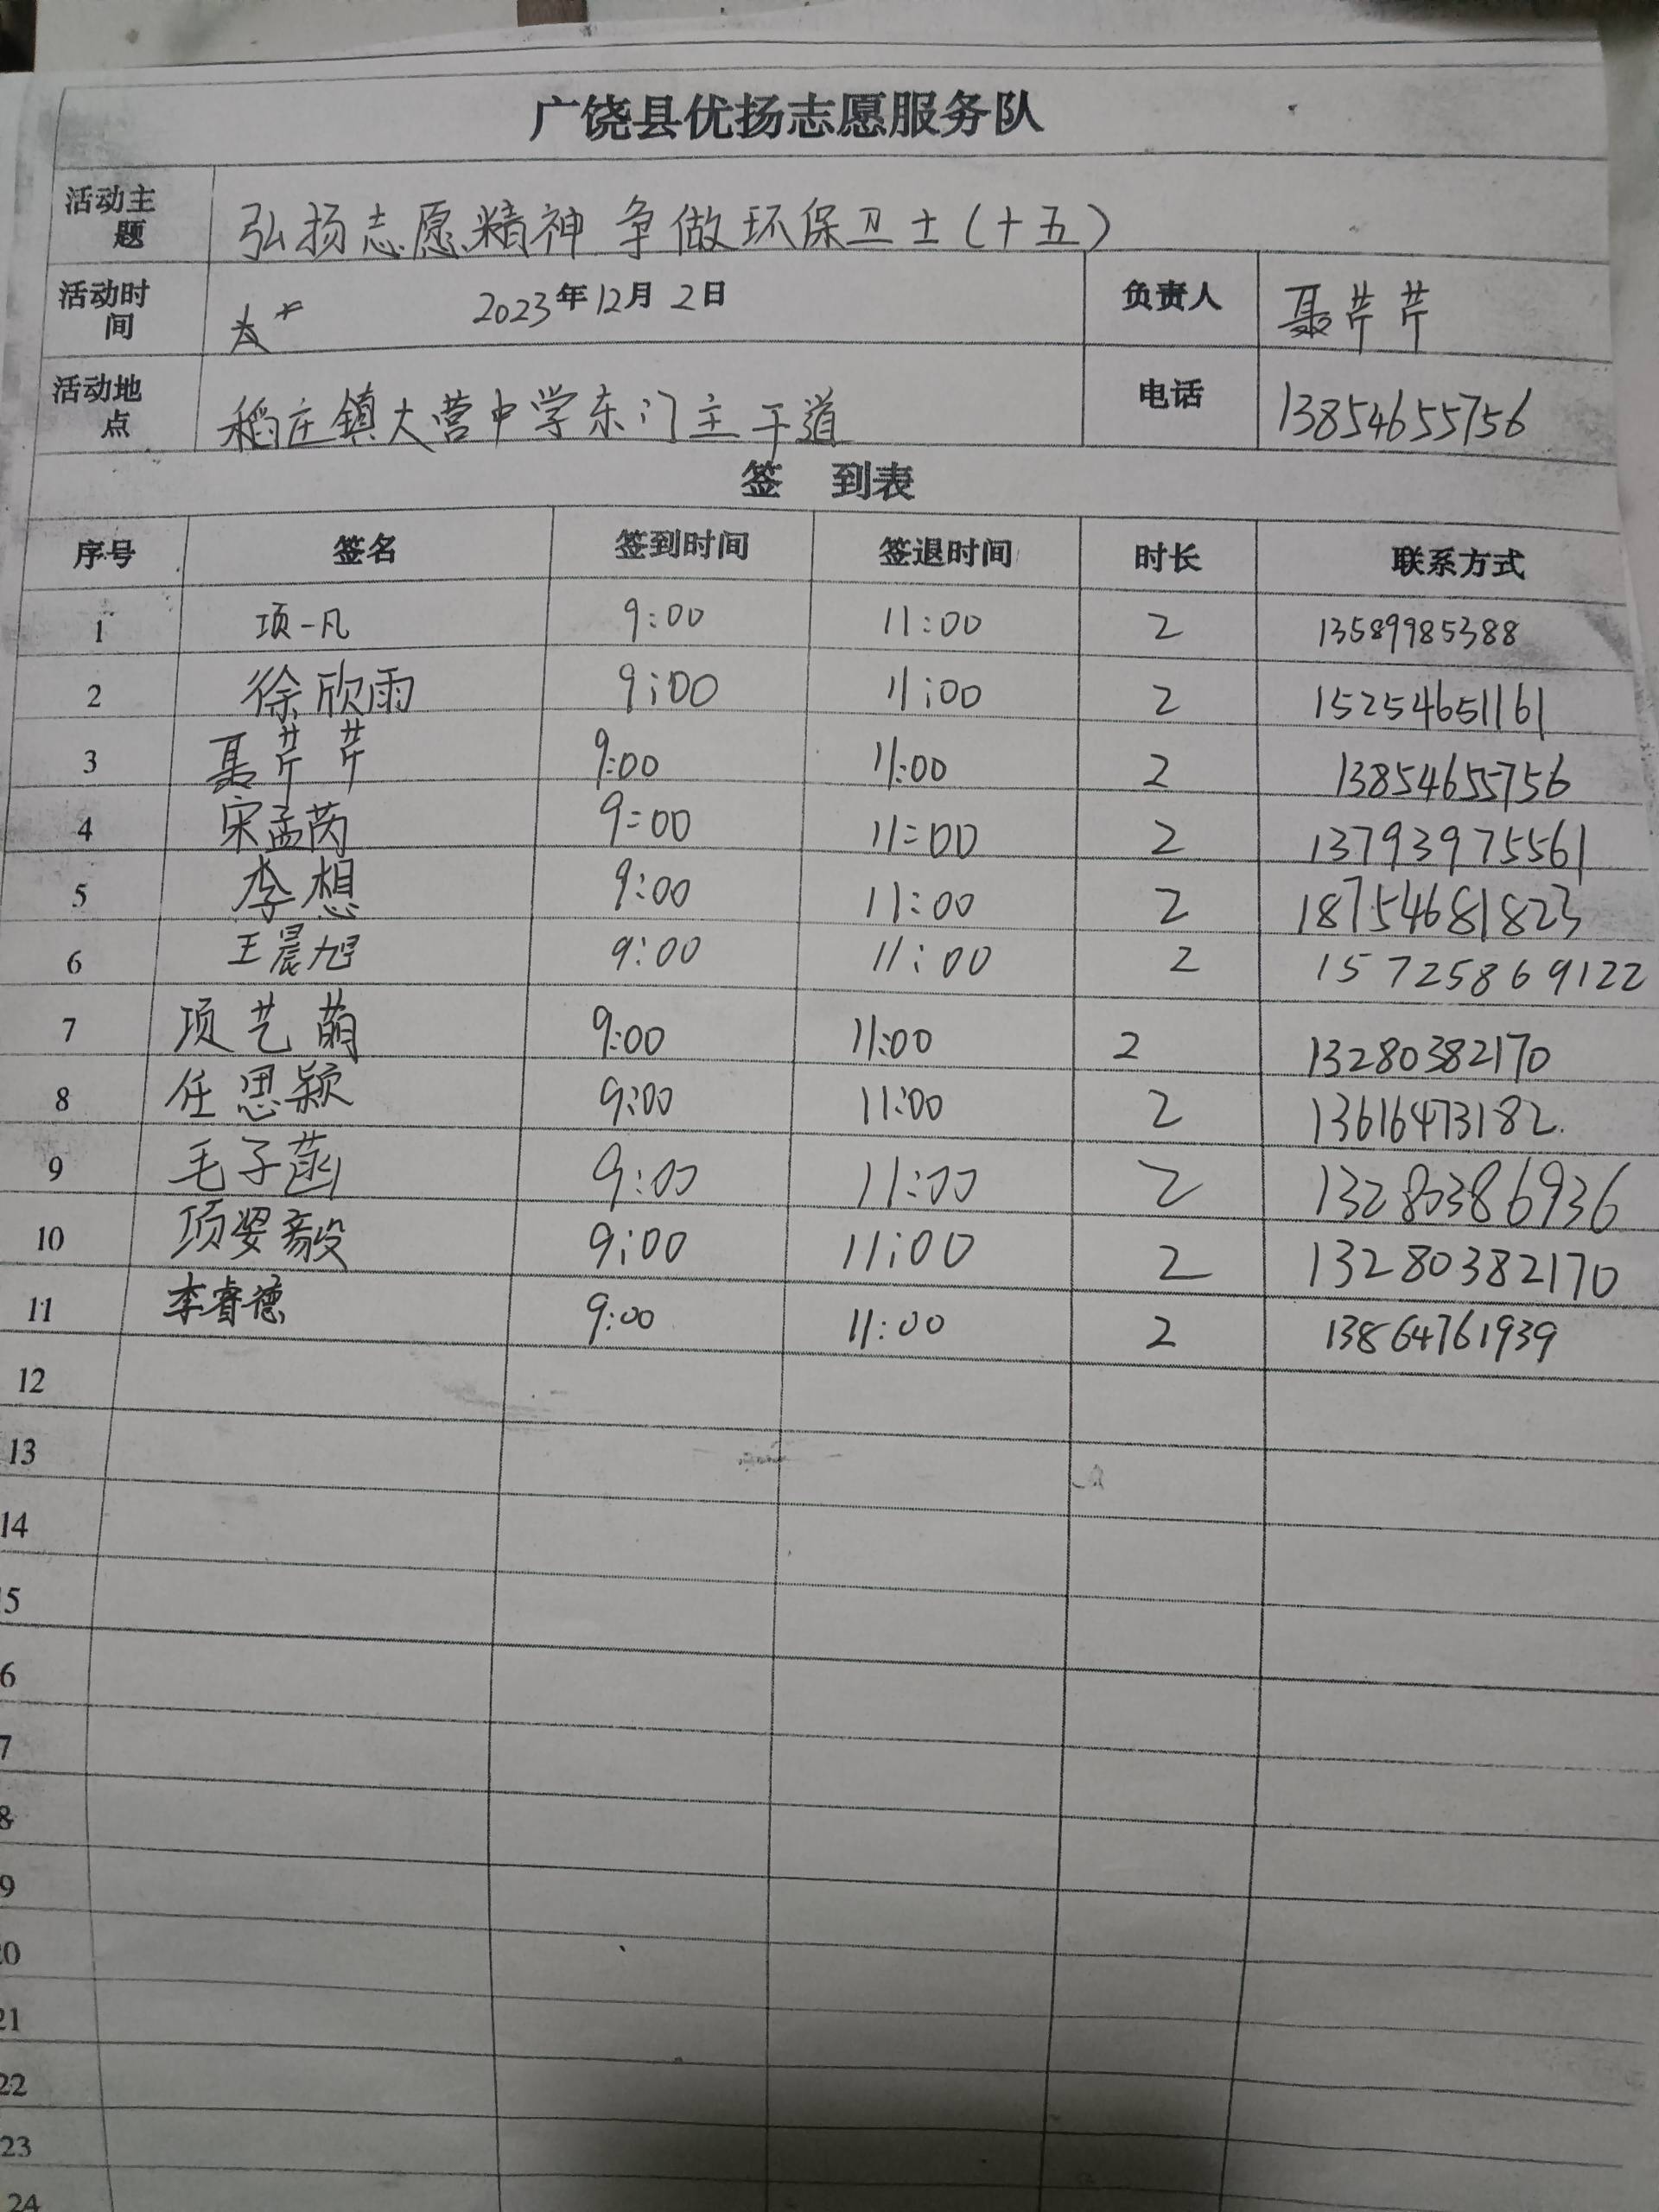 广饶县优扬志愿服务队
活动主题 弘扬志愿精神 争做环保卫士(十五)
活动时间 2023年12月2日 负责人 聂芹芹
活动地点 稻庄镇大营中学东门主干道 电话 13854655756
签 到表
序号 签名 签到时间 签退时间 时长 联系方式
1 项一凡 9:00 11:00 2 13589985388
2 徐欣雨 9:00 11:00 2 15254651161
3 聂芹芹 9:00 11:00 2 13854655756
4 宋孟芮 9:00 11:00 2 13793975561
5 李想 9:00 11:00 2 18754681823
6 王晨旭 9:00 11:00 2 15725869122
7 项艺萌 9:00 11:00 2 13280382170
8 任思颖 9:00 11:00 2 13616473182
9 毛子菡 9:00 11:00 2 13280386936
10 项 9:00 11:00 2 13280382170
11 李睿德 9:00 11:00 2 13864761939
12
13
14
5
6
7
8
9
0
21
22
23
24